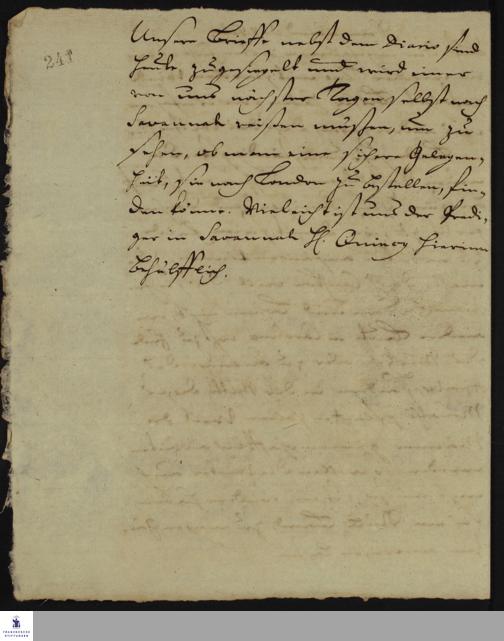 241
Unsere Brieffe nebst dem Diario sind
heute zugesiegelt und wird einer
von uns nächster Tagen selbst nach
Savannah reisen müssen, um zu
sehen, ob man eine sichere Gelegen-
heit, sie nach London zu bestellen, fin-
den könne. Vieleicht ist uns der Predi-
ger in Savannah H. Quincy hierinn
behülfflich.
FRANCKESCHE
STIFTUNGEN